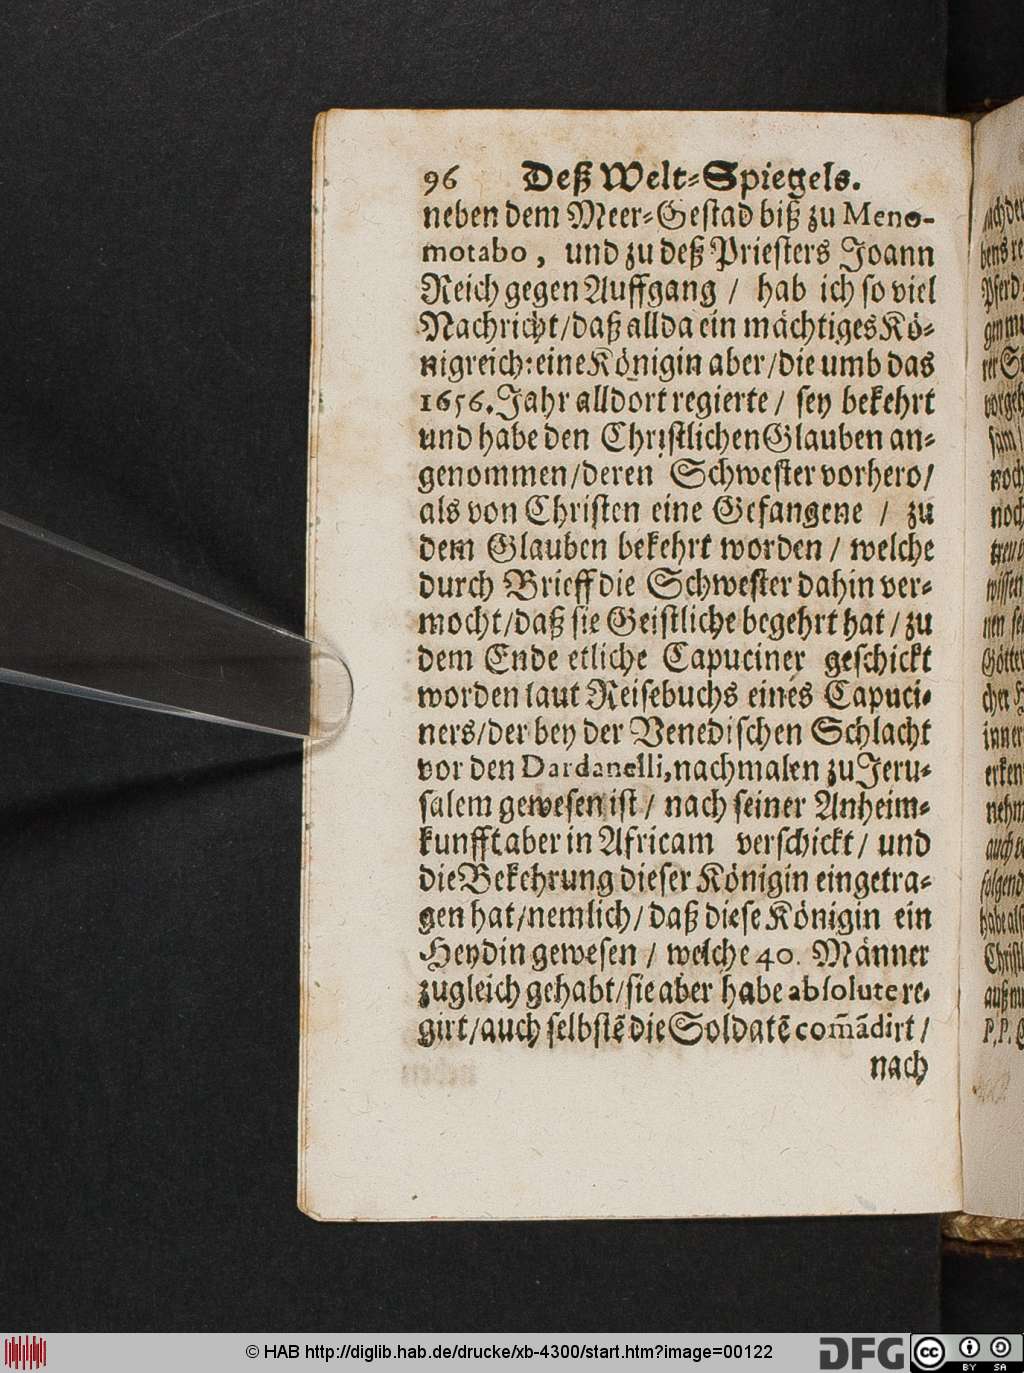 96 Deß Welt-Spiegels.
neben dem Meer-Gestad biß zu Meno-
motabo, und zu deß Priesters Joann
Reich gegen Auffgang / hab ich so viel
Nachricht/daß allda ein mächtiges Kö-
nigreich: eine Königin aber/die umb das
1656. Jahr alldort regierte / sey bekehrt
und habe den Christlichen Glauben an-
genommen/deren Schwester vorhero/
als von Christen eine Gefangene / zu
dem Glauben bekehrt worden / welche
durch Brieff die Schwester dahin ver-
mocht/daß sie Geistliche begehrt hat / zu
dem Ende etliche Capuciner geschickt
worden laut Reisebuchs eines Capuci-
ners/der bey der Venedischen Schlacht
vor den Dardanelli, nachmalen zu Jeru-
salem gewesen ist / nach seiner Anheim-
kunfft aber in Africam verschickt / und
die Bekehrung dieser Königin eingetra-
gen hat/nemlich/ daß diese Königin ein
Heydin gewesen / welche 40. Männer
zugleich gehabt/sie aber habe absolute re-
girt/auch selbstē die Soldatē com̄ādirt /
nach
© HAB http://diglib.hab.de/drucke/xb-4300/start.htm?image=00122
DFG
cc
BY SA